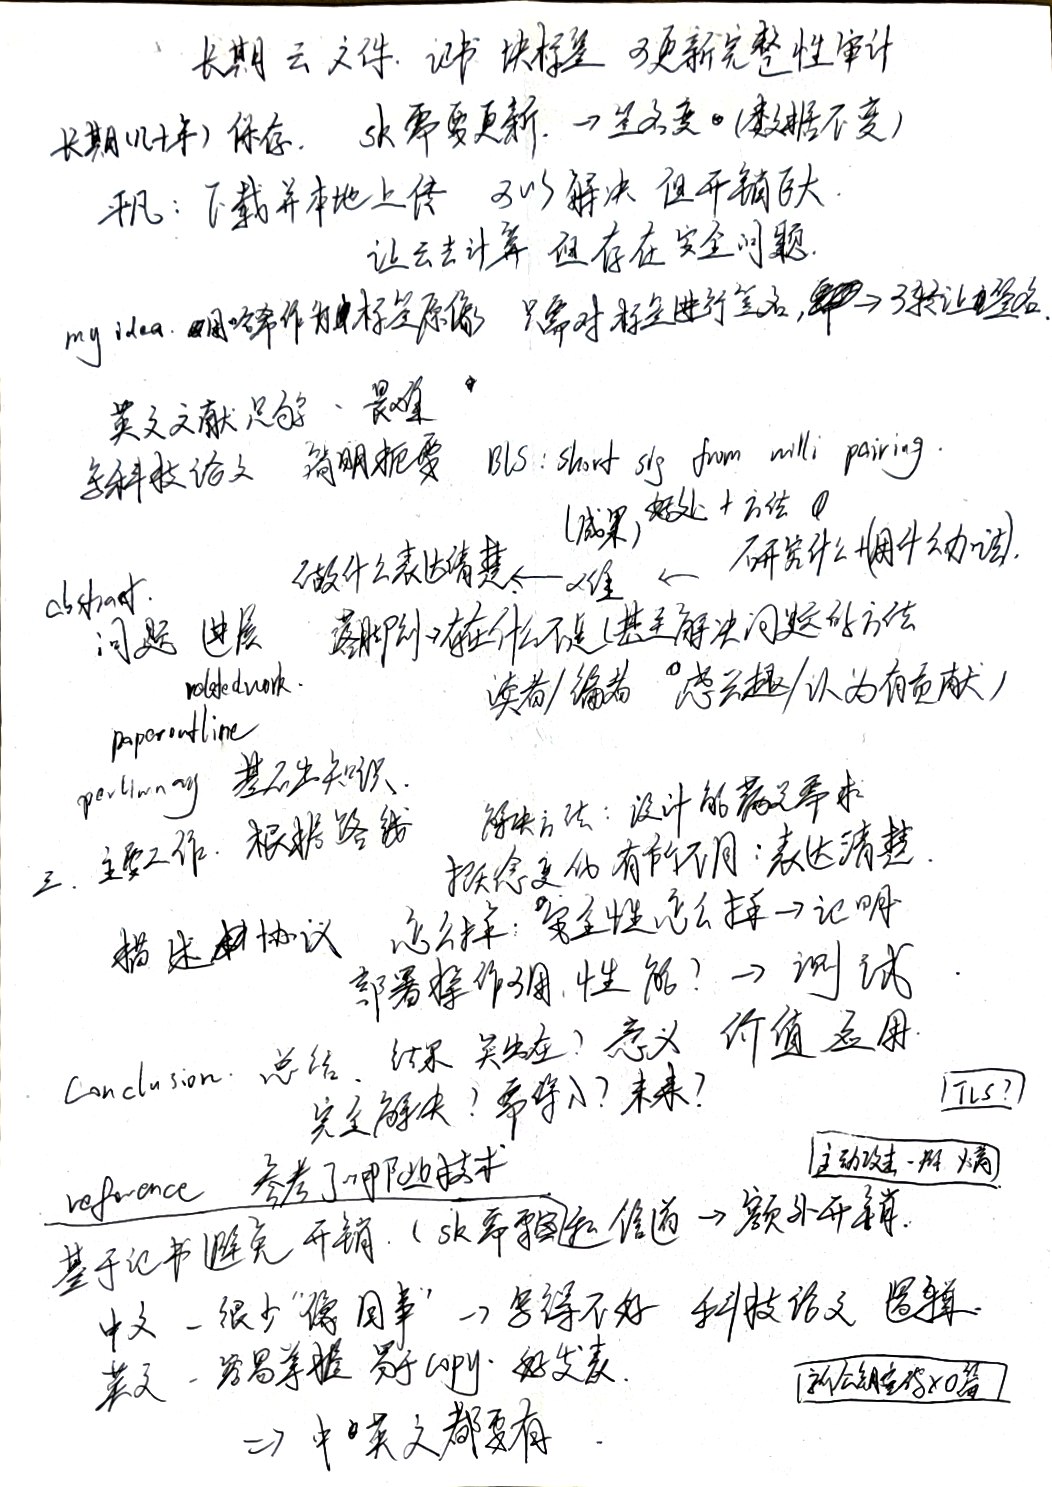 长期云文件. 证书 块标签 可更新完整性审计
长期(几十年)保存. sk需要更新. → 签名变 (数据不变)
平凡: 下载并本地上传 可以解决 但开销巨大.
让云去计算 但存在安全问题.
my idea. 用 作为 标签原像 只需对标签进行签名, → 可转让 签名.
英文文献 . 畏难
写科技论文 简明扼要 BLS: short sig from pairing.
(成果, 好处 + 方法
abstract. 做什么表达清楚 ← ← 研究什么+(用什么办法).
问题 进展 落脚到→存在什么不足(甚至解决问题的方法
relatedwork. 读者/编者 感兴趣/认为有贡献)
paperoutline
perliminay 基础知识.
三. 主要工作. 根据路线 解决方法: 设计 需求
有所不同: 表达清楚.
描述 协议 怎么样: 安全性怎么样 → 证明
部署操作可用, 性能? → 测试.
Conclusion. 总结. 结果 突出在? 意义 价值 应用.
完全解决? 需 ? 未来?
TLS?
主动攻击-
reference 参考了哪些技术
基于证书 避免开销. (sk需要 信道 → 额外开销.
中文 - 很少"像同事" → 写得不好 科技论文 逻辑.
英文 - 容易掌握 易于copy. 好发表.
⇒ 中英文都要有.